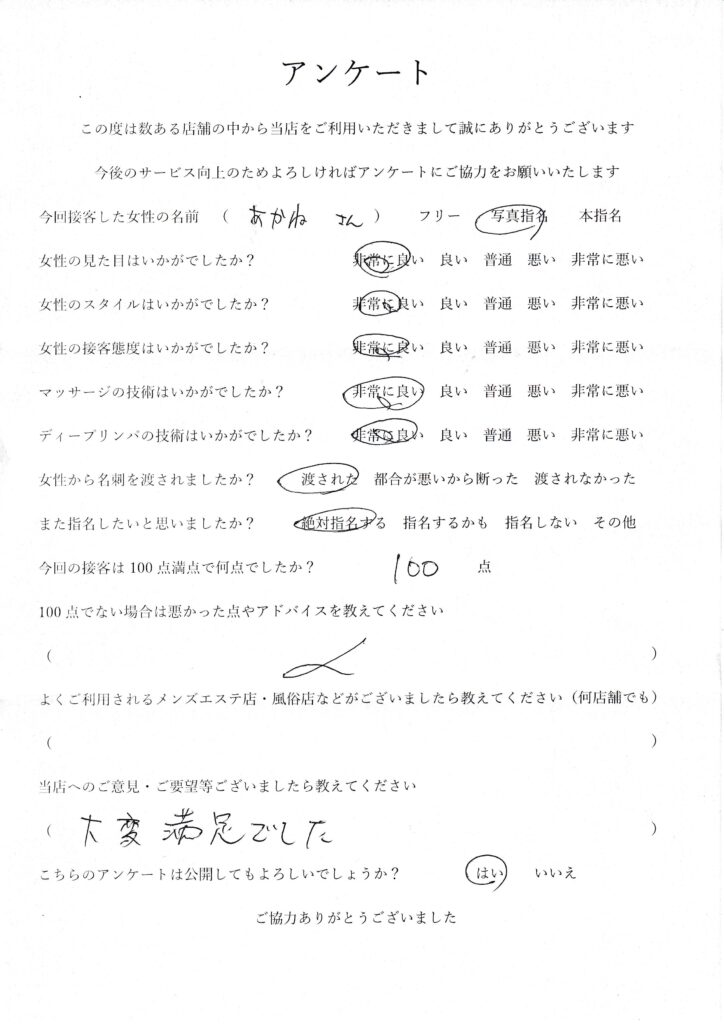 アンケート
この度は数ある店舗の中から当店をご利用いただきまして誠にありがとうございます
今後のサービス向上のためよろしければアンケートにご協力をお願いいたします
今回接客した女性の名前 ( あかね さん ) フリー 写真指名 本指名
女性の見た目はいかがでしたか? 非常に良い 良い 普通 悪い 非常に悪い
女性のスタイルはいかがでしたか? 非常に良い 良い 普通 悪い 非常に悪い
女性の接客態度はいかがでしたか? 非常に良い 良い 普通 悪い 非常に悪い
マッサージの技術はいかがでしたか? 非常に良い 良い 普通 悪い 非常に悪い
ディープリンパの技術はいかがでしたか? 非常に良い 良い 普通 悪い 非常に悪い
女性から名刺を渡されましたか? 渡された 都合が悪いから断った 渡されなかった
また指名したいと思いましたか? 絶対指名する 指名するかも 指名しない その他
今回の接客は100点満点で何点でしたか? 100 点
100点でない場合は悪かった点やアドバイスを教えてください
( )
よくご利用されるメンズエステ店・風俗店などがございましたら教えてください(何店舗でも)
( )
当店へのご意見・ご要望等ございましたら教えてください
( 大変満足でした )
こちらのアンケートは公開してもよろしいでしょうか? はい いいえ
ご協力ありがとうございました